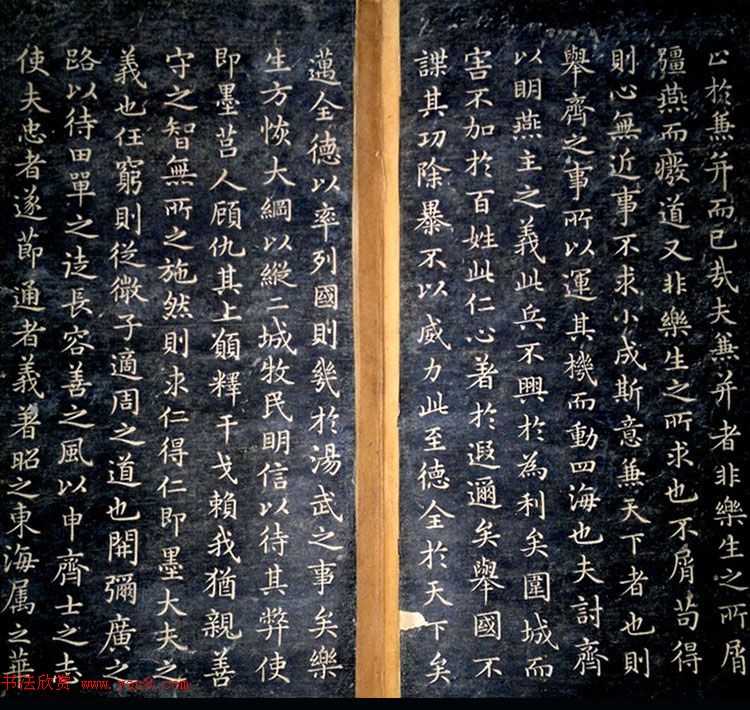 止於兼并而已哉夫兼并者非樂生之所屑
彊燕而癈道又非樂生之所求也不屑苟得
則心無近事不求小成斯意兼天下者也則
舉齊之事所以運其機而動四海也夫討齊
以明燕主之義此兵不興於為利矣圍城而
害不加於百姓此仁心著於遐邇矣舉國不
謀其功除暴不以威力此至德全於天下矣
邁全德以率列國則幾於湯武之事矣樂
生方恢大綱以縱二城牧民明信以待其弊使
即墨莒人顧仇其上願釋干戈賴我猶親善
守之智無所之施然則求仁得仁即墨大夫之
義也任窮則從微子適周之道也開彌廣之
路以待田單之徒長容善之風以申齊士之志
使夫忠者遂節通者義著昭之東海属之華
书法欣赏 www.yac8.com